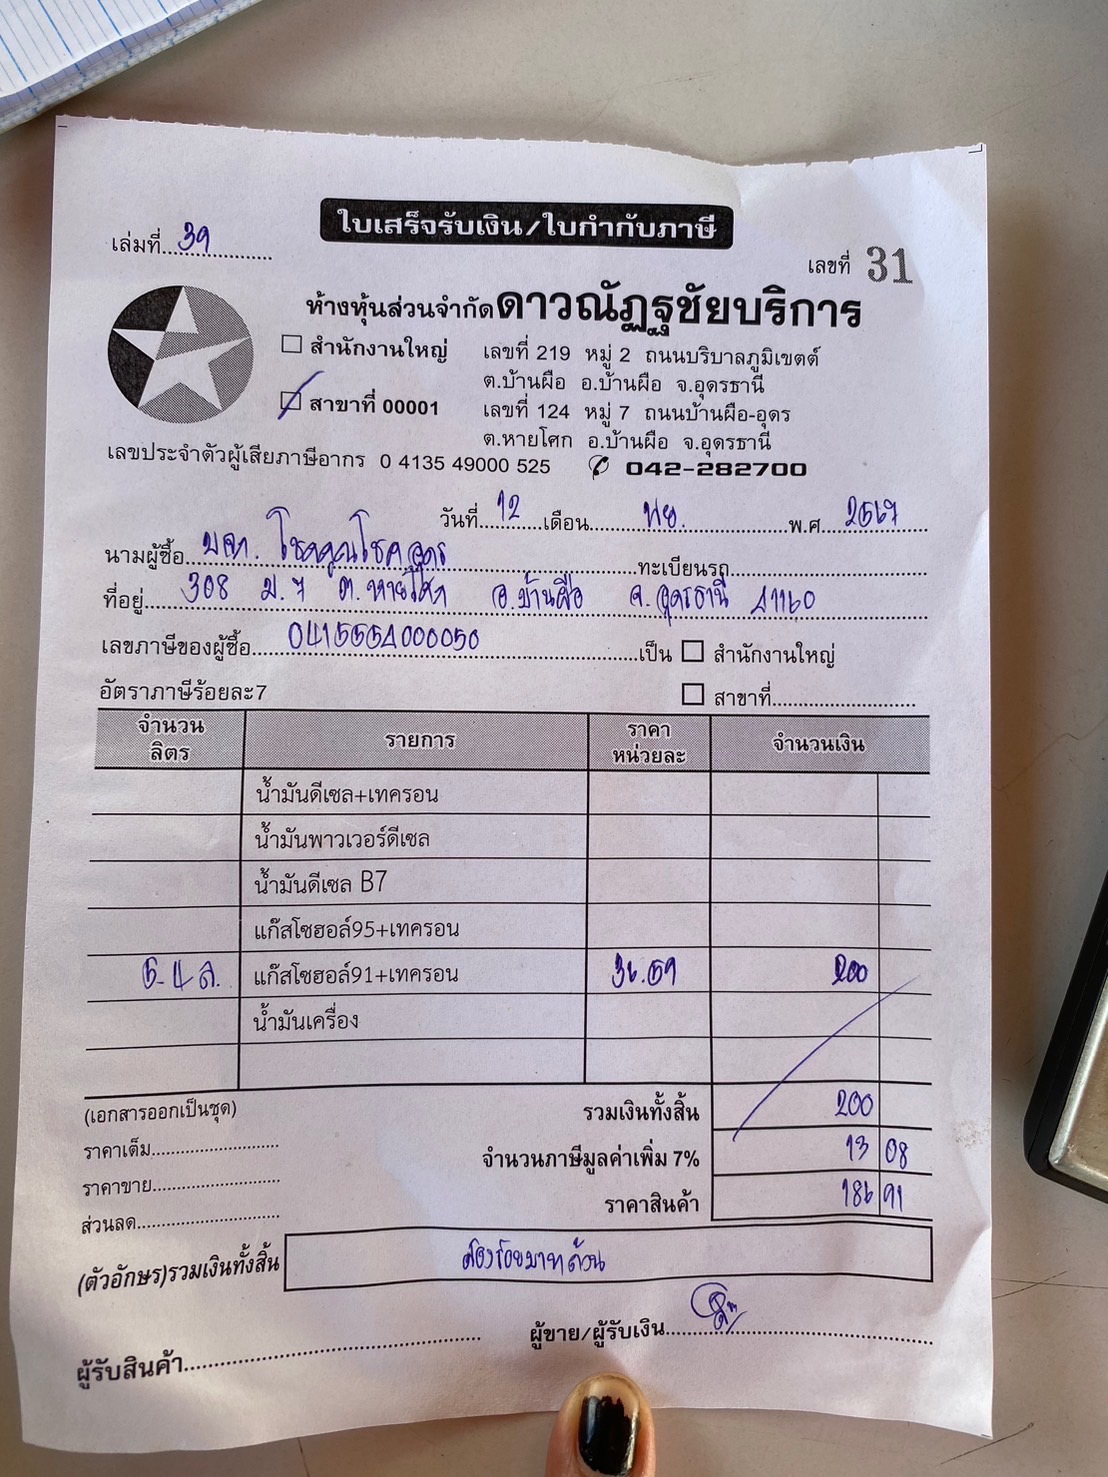 ใบเสร็จรับเงิน/ใบกำกับภาษี
เล่มที่ 39
เลขที่ 31
ห้างหุ้นส่วนจำกัดดาวณัฏฐชัยบริการ
สำนักงานใหญ่ เลขที่ 219 หมู่ 2 ถนนบริบาลภูมิเขตต์
ต.บ้านผือ อ.บ้านผือ จ.อุดรธานี
สาขาที่ 00001 เลขที่ 124 หมู่ 7 ถนนบ้านผือ-อุดร
ต.หายโศก อ.บ้านผือ จ.อุดรธานี
เลขประจำตัวผู้เสียภาษีอากร 0 4135 49000 525 042-282700
วันที่ 12 เดือน พย. พ.ศ. 2567
นามผู้ซื้อ บจก. โชคคูณโชคอุดร ทะเบียนรถ
ที่อยู่ 308 ม.7 ต.หายโศก อ.บ้านผือ จ.อุดรธานี 41160
เลขภาษีของผู้ซื้อ 0415554000050 เป็น สำนักงานใหญ่
อัตราภาษีร้อยละ7 สาขาที่
จำนวนลิตร รายการ ราคาหน่วยละ จำนวนเงิน
น้ำมันดีเซล+เทครอน
น้ำมันพาวเวอร์ดีเซล
น้ำมันดีเซล B7
แก๊สโซฮอล์95+เทครอน
5.4 ล. แก๊สโซฮอล์91+เทครอน 36.59 200
น้ำมันเครื่อง
(เอกสารออกเป็นชุด) รวมเงินทั้งสิ้น 200
ราคาเต็ม
จำนวนภาษีมูลค่าเพิ่ม 7% 13 08
ราคาขาย
ราคาสินค้า 186 91
ส่วนลด
(ตัวอักษร)รวมเงินทั้งสิ้น สองร้อยบาทถ้วน
ผู้ขาย/ผู้รับเงิน
ผู้รับสินค้า